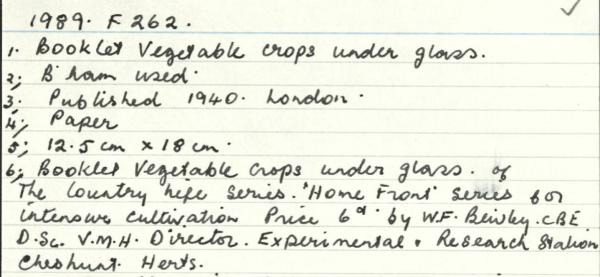 1989. F 262.
1. Booklet Vegetable crops under glass.
2; B'ham used.
3. Published 1940. London.
4; Paper
5; 12.5 cm x 18 cm.
6; Booklet Vegetable crops under glass. of
The Country Life Series. 'Home Front' Series for
intensive cultivation Price 6d. by W.F. Bewley. CBE
D.Sc. V.M.H. Director. Experimental & Research Station
Cheshunt. Herts.